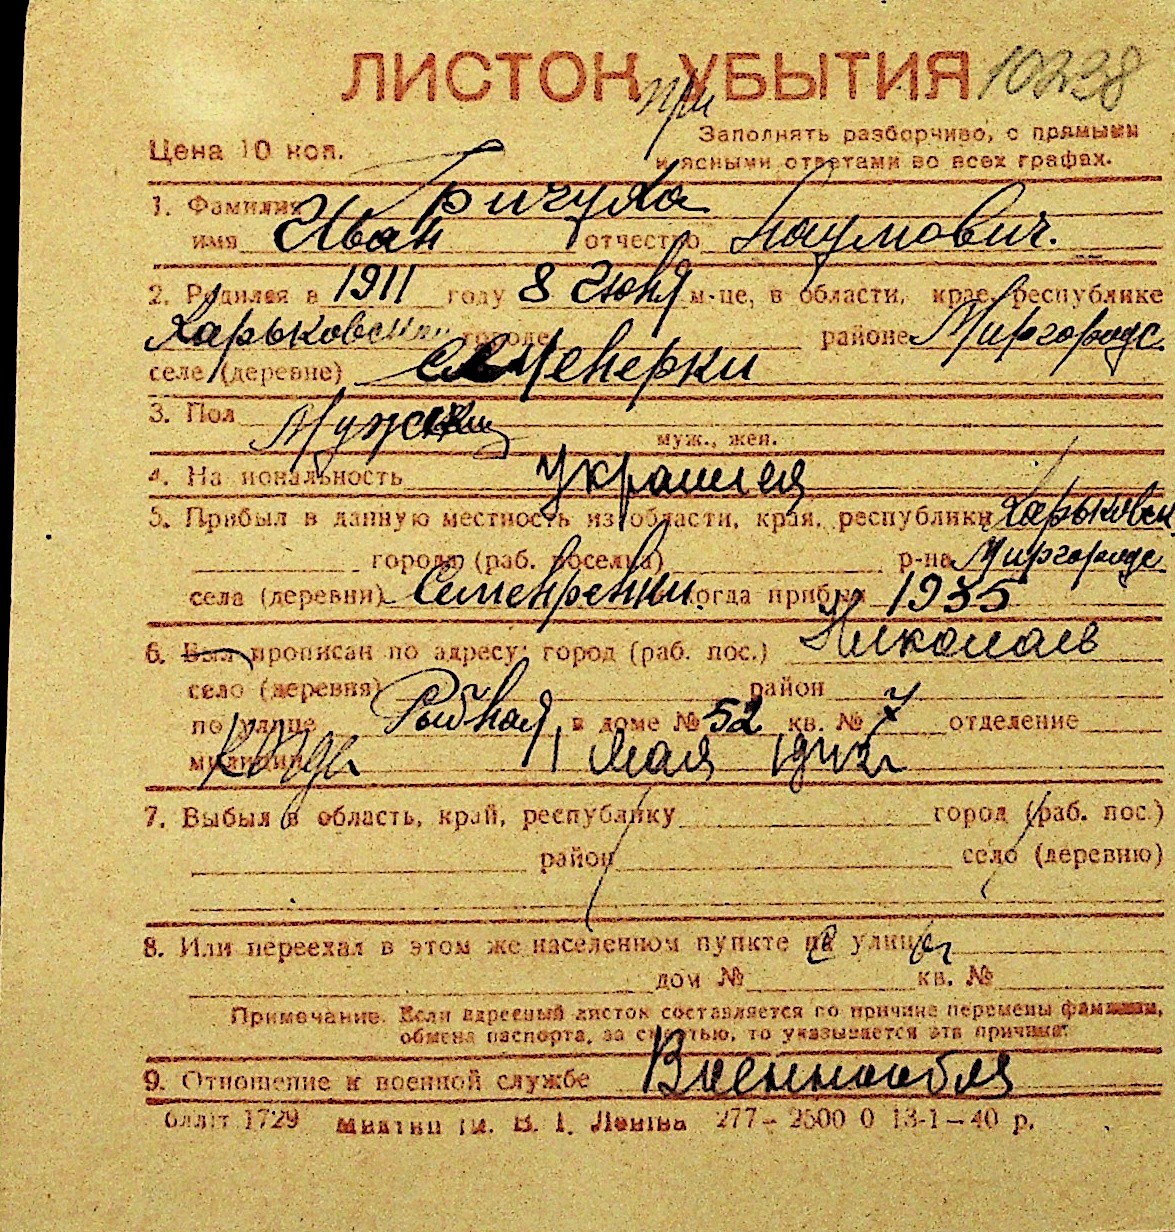 ЛИСТОК УБЫТИЯ 10238
при
Цена 10 коп. Заполнять разборчиво, с прямыми
и ясными ответами во всех графах.
1. Фамилия Гричуха
имя Иван отчество Наумович.
2. Родился в 1911 году 8 Июня м-це, в области, крае, республике
Харьковской городе районе Миргородс.
селе (деревне) Семенерки
3. Пол Мужской
муж., жен.
4. Национальность Украинец
5. Прибыл в данную местность из области, края, республики Харьковск
города (раб. поселка) р-на Миргородс
села (деревни) когда прибыл 1935
6. Был прописан по адресу: город (раб. пос.) Николаев
село (деревня) район
по улице Рыбная, в доме № 52 кв. № 7 отделение
милиции 1 мая 1942 г
7. Выбыл в область, край, республику город (раб. пос.)
район село (деревню)
8. Или переехал в этом же населенном пункте на улицу
дом № кв. №
Примечание. Если адресный листок составляется по причине перемены фамилии,
обмена паспорта, за смертью, то указывается эта причина.
9. Отношение к военной службе Военнообяз
бллiт 1729 Миктип iм. В. I. Ленiна 277 — 2500 0 13-1—40 р.